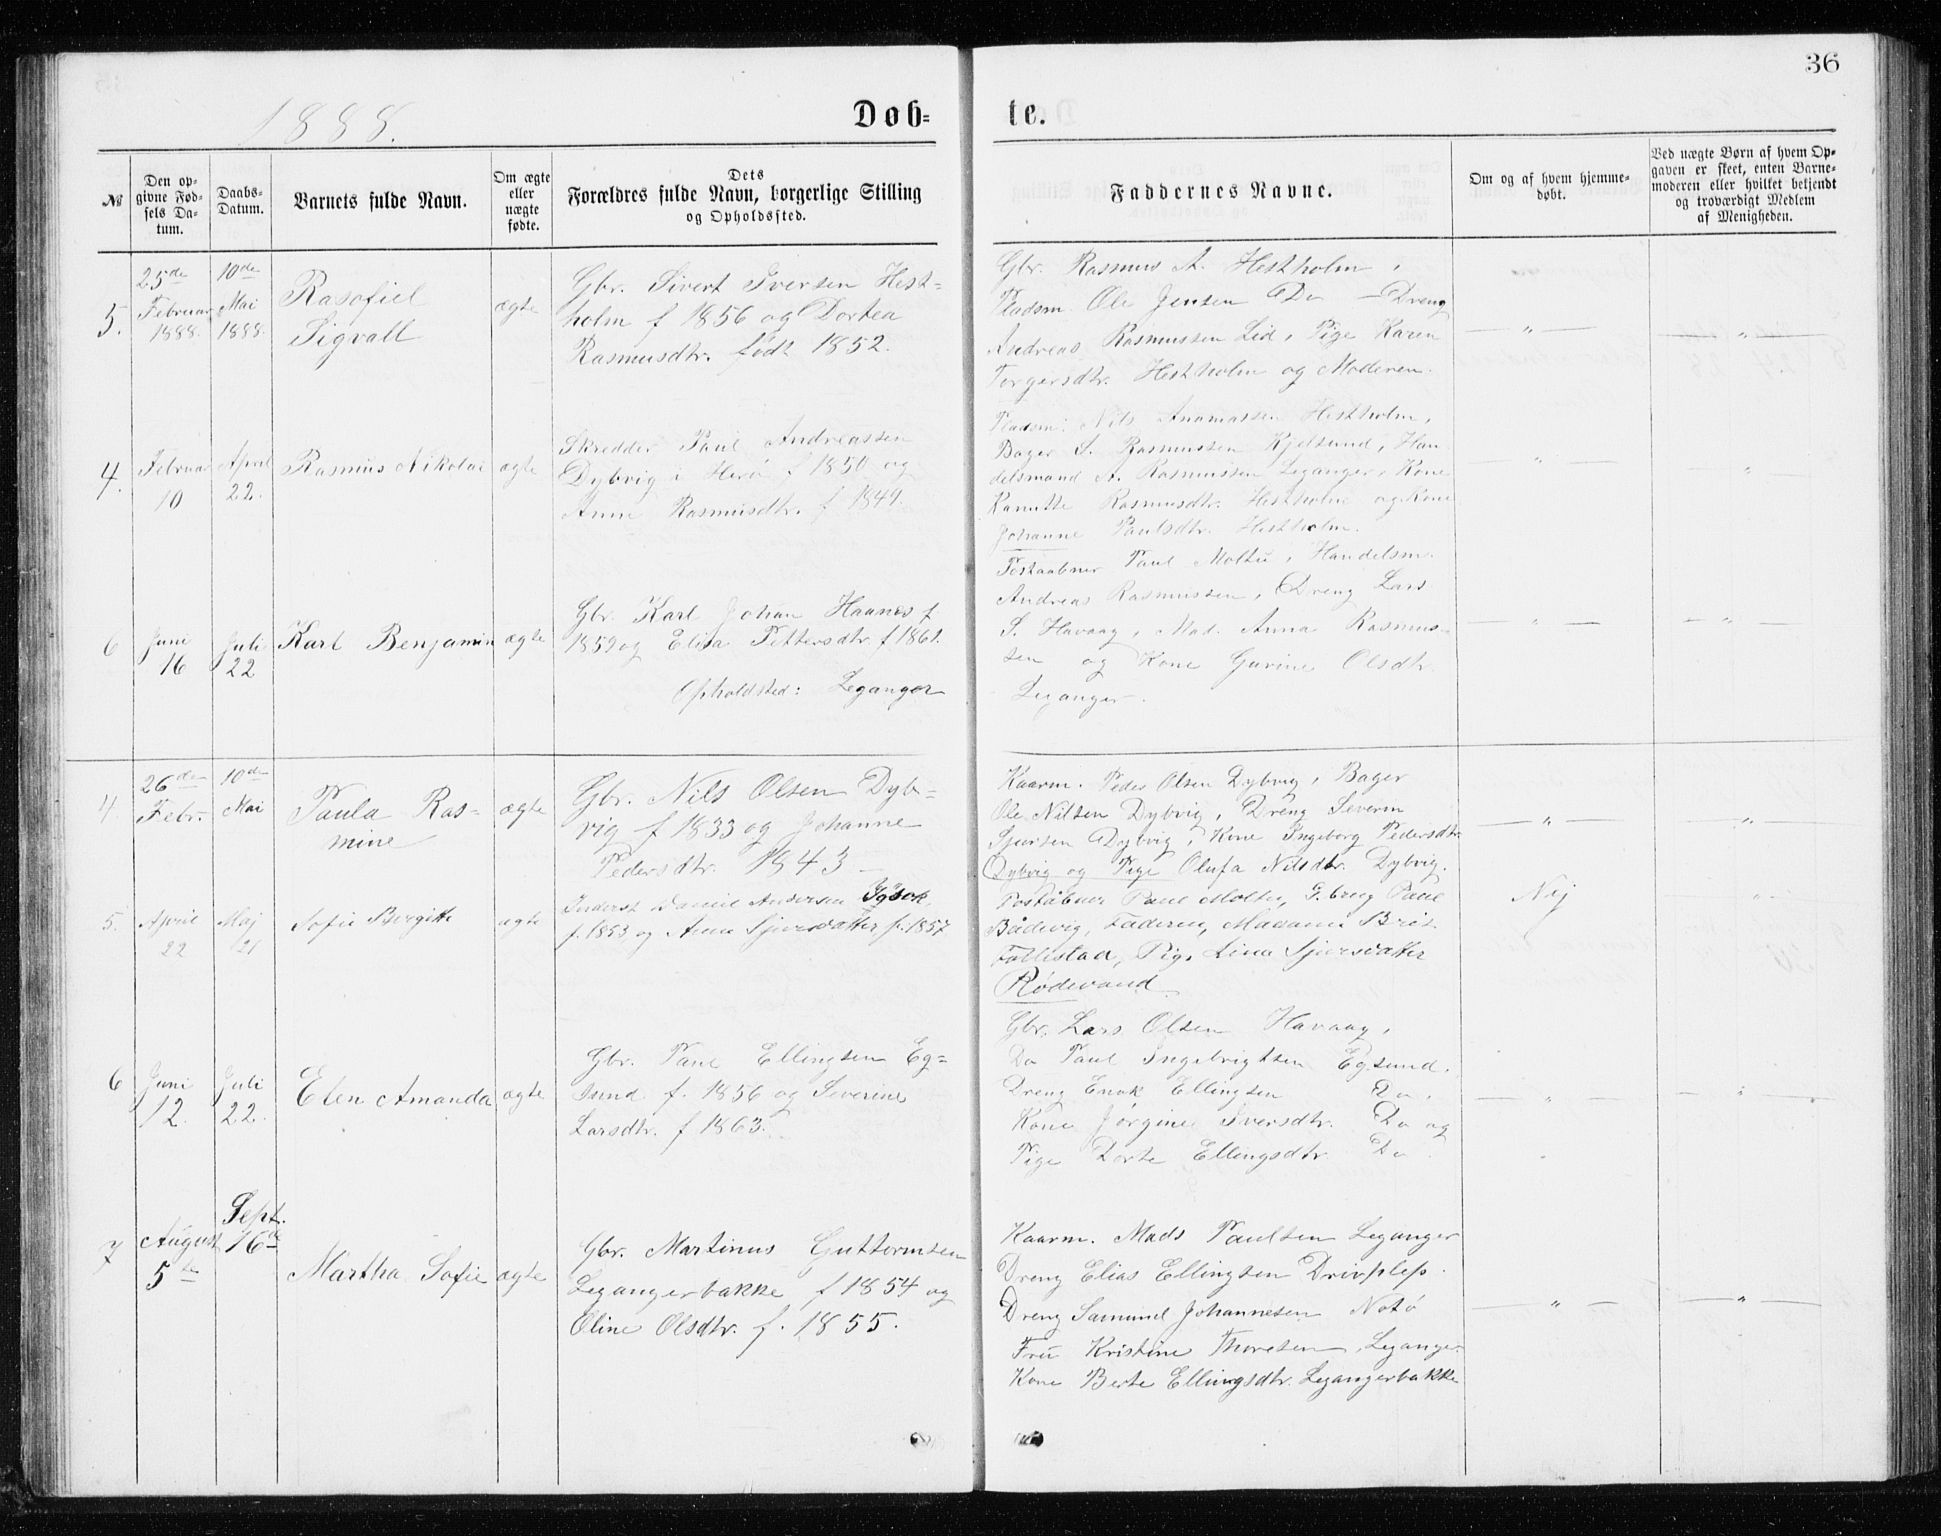 36
1888.
Døb= te.
№
Den op-
givne Fød-
sels Da-
tum.
Daabs-
Datum.
Barnets fulde Navn.
Om ægte
eller
uægte
fødte.
Dets
Forældres fulde Navn, borgerlige Stilling
og Opholdssted.
Faddernes Navne.
Om og af hvem hjemme-
døbt.
Ved uægte Børn af hvem Op-
gaven er skeet, enten Barne-
moderen eller hvilket bekjendt
og troværdigt Medlem
af Menigheden.
5.
25de
Februar
1888.
10de
Mai
1888.
Rasofiel
Sigvall
ægte
Gbr. Sivert Iversen Hest=
holm f 1856 og Dortea
Rasmusdtr. født 1852.
Gbr. Rasmus A. Hestholm,
Pladsm. Ole Jensen Do – Dreng
Andreas Rasmussen Lid, Pige Karen
Torgersdtr. Hestholm og Moderen.
— " —
— " —
4.
Februar
10
April
22.
Rasmus Nikolai
ægte
Skredder Paul Andreassen
Dybvig i Herø f 1850 og
Anne Rasmusdtr. f 1849.
Pladsm: Nils Hestholm,
Bager S. Rasmussen Kjelsund, Han
delsmand A. Rasmussen Leganger, Kone
Ranutte Rasmusdtr. Hestholm og Kone
Johanne Paulsdtr. Hestholm.
— " —
"
6
Juni
16
Juli
22
Karl Benjamin
ægte
Gbr. Karl Johan Haanes f
1859 og Elisa Pettersdtr. f 1861.
Opholdsted: Leganger
Postaabner Paul Moltu, Handelsm.
Andreas Rasmussen, Dreng Lars
S. Havaag, Mad. Anna Rasmus-
sen og Kone Gurine Olsdtr.
Leganger.
— " —
— " —
4.
26de
Febr.
10de
Mai
Paula Ras-
mine
ægte
Gbr. Nils Olsen Dyb=
vig f 1833 og Johanne
Pedersdtr. 1843 –
Kaarm. Peder Olsen Dybvig, Bager
Ole Nilsen Dybvig, Dreng Severin
Sjursen Dybvig, Kone Ingeborg Pedersdtr.
Dybvig og Pige Olufa Nilsdtr. Dybvig.
— " —
— " —
5.
April
22
Maj
21
Sofie Bergitte
ægte
Inderst Daniel Andersen
f. 1853 og Anna Sjursdatter f. 1857
Poståbner Paul Moltu, G.brug Paul
Bådsvig, Faderen, Madame Brit
Follestad, Pige Lina Sjursdatter
Rødevand
Nej
"
6
Juni
12.
Juli
22.
Elen Amanda
ægte
Gbr. Paul Ellingsen Eg=
sund f. 1856 og Severine
Larsdtr. f 1863.
Gbr. Lars Olsen Havaag,
Do Paul Ingebrigtsen Egsund.
Dreng Enok Ellingsen Do,
Kone Jørgine Iversdtr. Do og
Pige Dorte Ellingsdtr. Do.
— " —
— " —
7
August
5te
Sept.
16de
Martha Sofie
ægte
Gbr. Martinus Guttormsen
Legangerbakke f 1854 og
Oline Olsdtr. f. 1855.
Kaarm. Mads Paulsen Leganger
Dreng Elias Ellingsen
Dreng Samund Johannesen Notø
Fru Kristine Thoresen, Leganger
Kone Berte Ellingsdtr. Legangerbakke
— " —
— " —